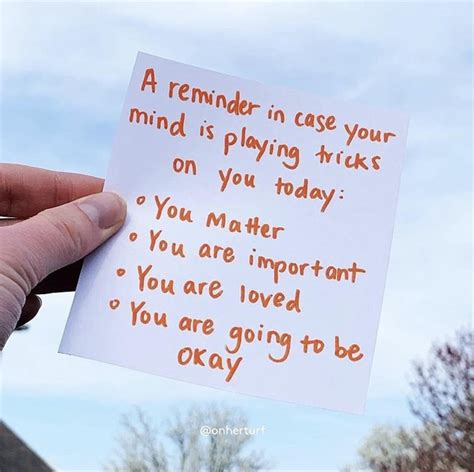 A reminder in case your
mind is playing tricks
on you today:
• You Matter
• You are important
• You are loved
• You are going to be
okay
@onherturf